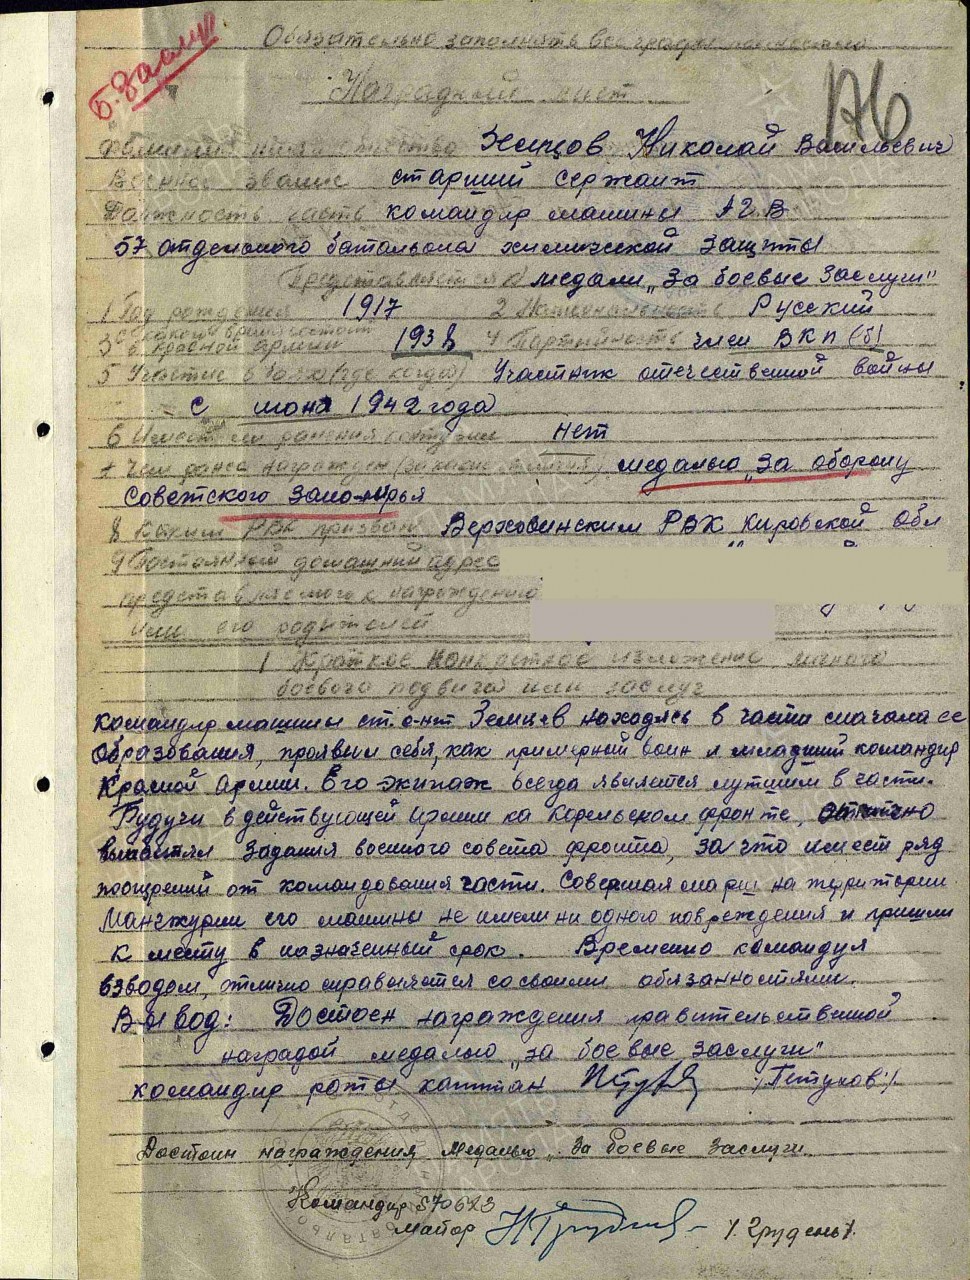 Б. Заслуг
Обязательно заполнять все графы полностью
176
Наградной лист
Фамилия имя отчество Земцов Николай Васильевич
Военное звание старший сержант
Должность часть командир машины АГВ
57 отдельного батальона химической защиты
Представляется к медали „За боевые заслуги"
1 Год рождения 1917 2 Национальность Русский
3 с какого времени состоит в Красной армии 1938 4 Партийность член ВКП(б)
5 Участие в боях (где когда) Участник отечественной войны
с июня 1942 года
6 Имеет ли ранения контузии нет
7 Чем ранее награжден медалью „За оборону
Советского Заполярья
8 Каким РВК призван Верховинским РВК Кировской Обл
9 Постоянный домашний адрес
представляемого к награждению
или его родителей
1 Краткое конкретное изложение личного
боевого подвига или заслуг
Командир машины ст. с-нт Земцев находясь в части сначала ее
образования, проявил себя, как примерный воин и младший командир
Красной Армии. Его экипаж всегда является лутшим в части.
Будучи в действующей армии на Карельском фронте, отлично
выполнял задания военного совета фронта, за что имеет ряд
поощрений от командования части. Совершая марш на территории
Манчжурии его машины не имели ни одного повреждения и пришли
к месту в назначенный срок. Временно командуя
взводом, отлично справляется со своими обязанностями.
Вывод: Достоен награждения правительственной
наградой медалью „за боевые заслуги"
командир роты капитан /Петухов/
Достоин награждения медалью „За боевые заслуги.
Командир 57 ОБХЗ
майор /Грудень/.